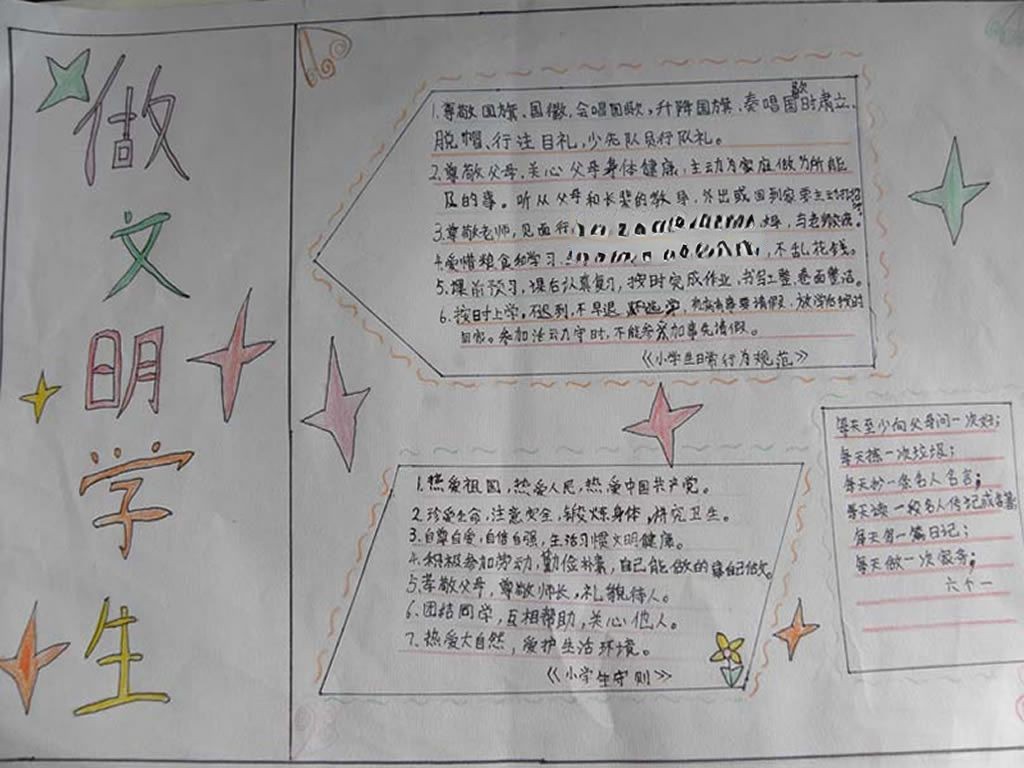 做文明学生
1.尊敬国旗、国徽,会唱国歌,升降国旗、奏唱国歌时肃立、
脱帽、行注目礼,少先队员行队礼。
2.尊敬父母,关心父母身体健康,主动为家庭做力所能
及的事。听从父母和长辈的教导,外出或回到家要主动
3.尊敬老师,见面行
4.爱惜粮食和学习 ,不乱花钱。
5.课前预习,课后认真复习,按时完成作业,书写工整卷面整洁。
6.按时上学,不迟到,不早退,不逃学,有事要请假,放学后按时
回家。参加活动守时,不能参加事先请假。
《小学生日常行为规范》
1.热爱祖国,热爱人民,热爱中国共产党。
2.珍爱生命,注意安全,锻炼身体,讲究卫生。
3.自尊自爱,自信自强,生活习惯文明健康。
4.积极参加劳动,勤俭朴素,自己能做的事自己做。
5.孝敬父母,尊敬师长,礼貌待人。
6.团结同学,互相帮助,关心他人。
7.热爱大自然,爱护生活环境。
《小学生守则》
每天至少向父母问一次好;
每天捡一次垃圾;
每天抄一条名人名言;
每天读一段名人传记或
每天写一篇日记;
每天做一次家务;
六个一